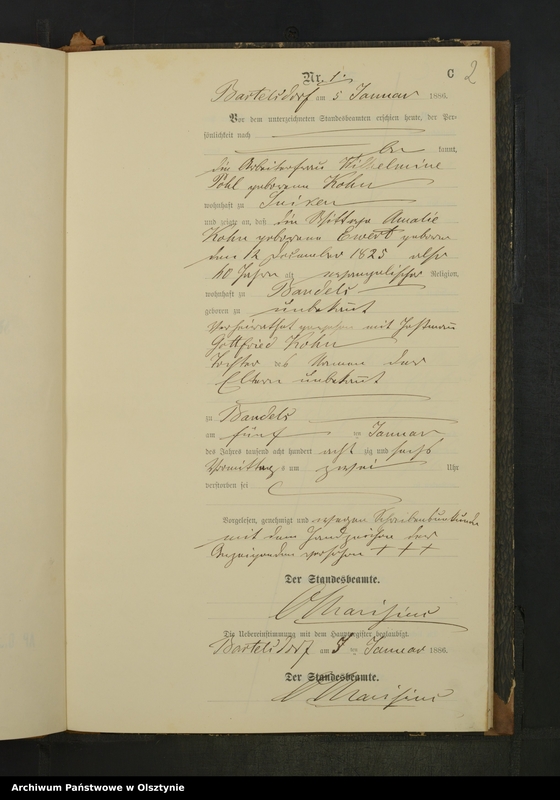 C 2
Nr. 1.
Bartelsdorf am 5 Januar 1886.
Vor dem unterzeichneten Standesbeamten erschien heute, der Per-
sönlichkeit nach
be kannt,
die Arbeiterfrau Wilhelmine
Pohl geborene Kohn
wohnhaft zu
und zeigte an, daß die Wittwe Amalie
Kohn geborene Ewert geboren
den 12 Dezember 1825 also
60 Jahre alt, evangelischer Religion,
wohnhaft zu Bandels
geboren zu unbekannt
Verheirathet gewesen mit
Gottfried Kohn
Tochter der Namen der
Eltern unbekannt
zu Bandels
am fünf ten Januar
des Jahres tausend acht hundert acht zig und sechs
Vormittags um zwei Uhr
verstorben sei
Vorgelesen, genehmigt und wegen Schreibensunkunde
mit dem Handzeichen der
Anzeigenden versehen + + +
Der Standesbeamte.
Die Uebereinstimmung mit dem Hauptregister beglaubigt.
Bartelsdorf am 5 ten Januar 1886.
Der Standesbeamte.
Archiwum Państwowe w Olsztynie